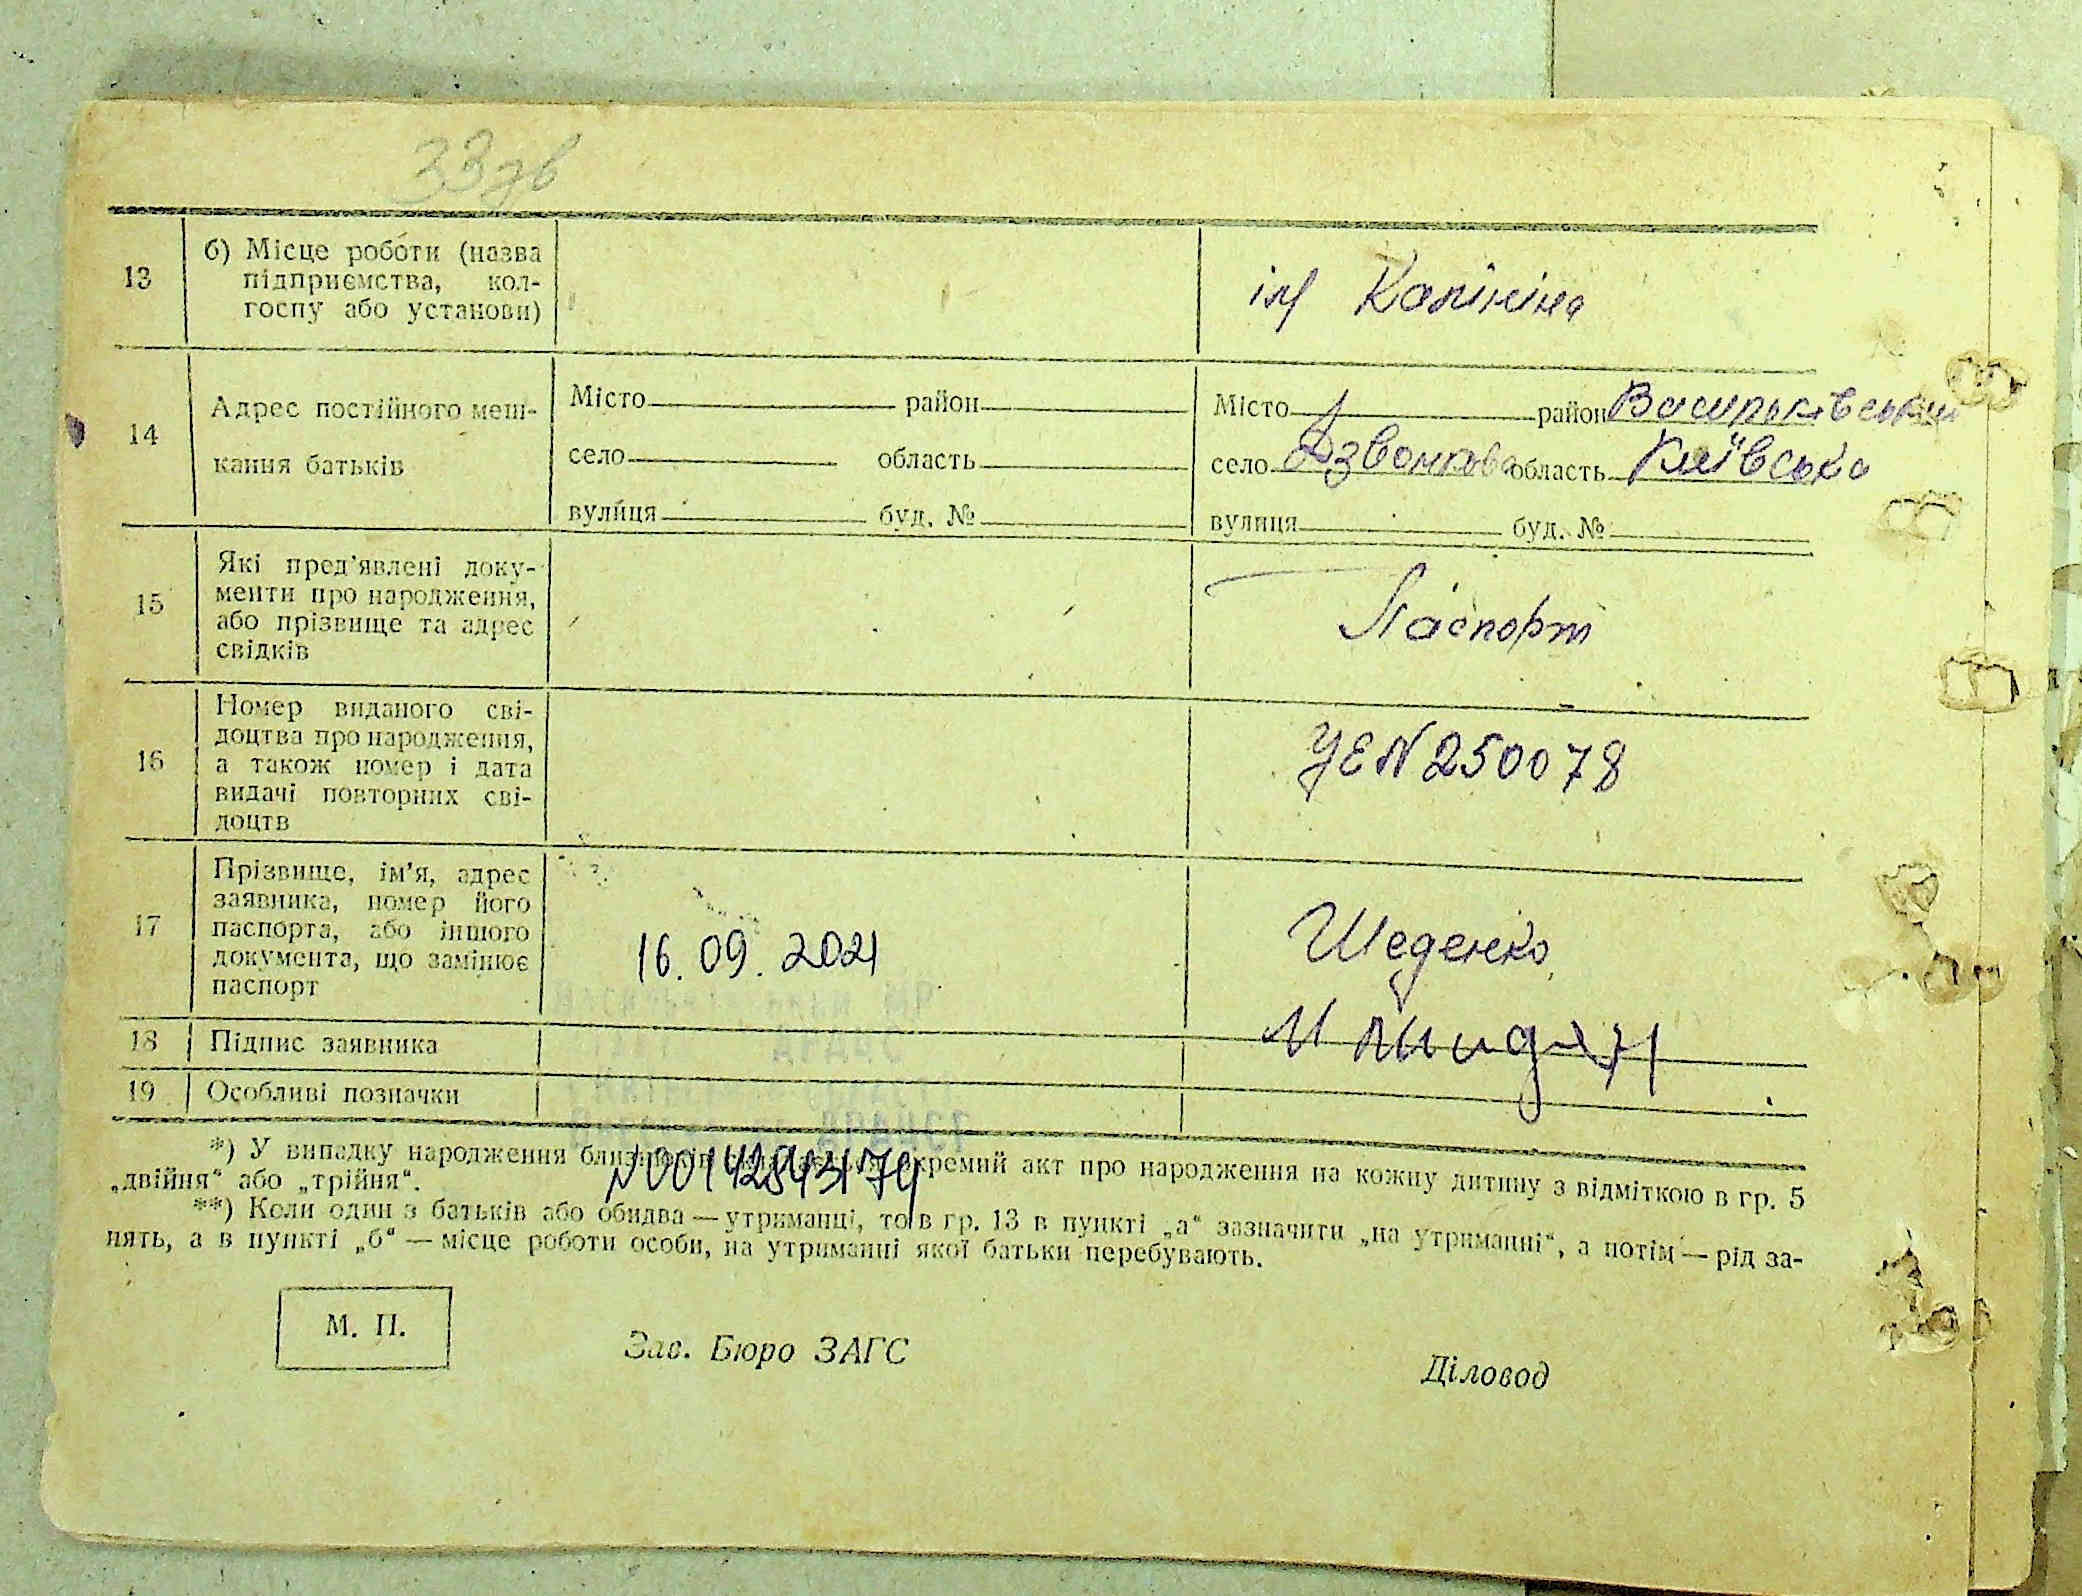 33зв
13 б) Місце роботи (назва
підприємства, кол-
госпу або установи)
ім Калініна
14 Адрес постійного меш-
кання батьків
Місто район
село область
вулиця буд. №
Місто район Васильківський
село Дзвонкова область Київська
вулиця буд. №
15 Які пред'явлені доку-
менти про народження,
або прізвище та адрес
свідків
Паспорт
16 Номер виданого сві-
доцтва про народження,
а також номер і дата
видачі повторних сві-
доцтв
УЕ N 250078
17 Прізвище, ім'я, адрес
заявника, номер його
паспорта, або іншого
документа, що замінює
паспорт
16.09.2021
Шеденко
18 Підпис заявника
19 Особливі позначки
*) У випадку народження близнюків окремий акт про народження на кожну дитину з відміткою в гр. 5
„двійня“ або „трійня“.
**) Коли один з батьків або обидва — утриманці, то в гр. 13 в пункті „а“ зазначити „на утриманні“, а потім — рід за-
нять, а в пункті „б“ — місце роботи особи, на утриманні якої батьки перебувають.
М. П.
Зав. Бюро ЗАГС
Діловод